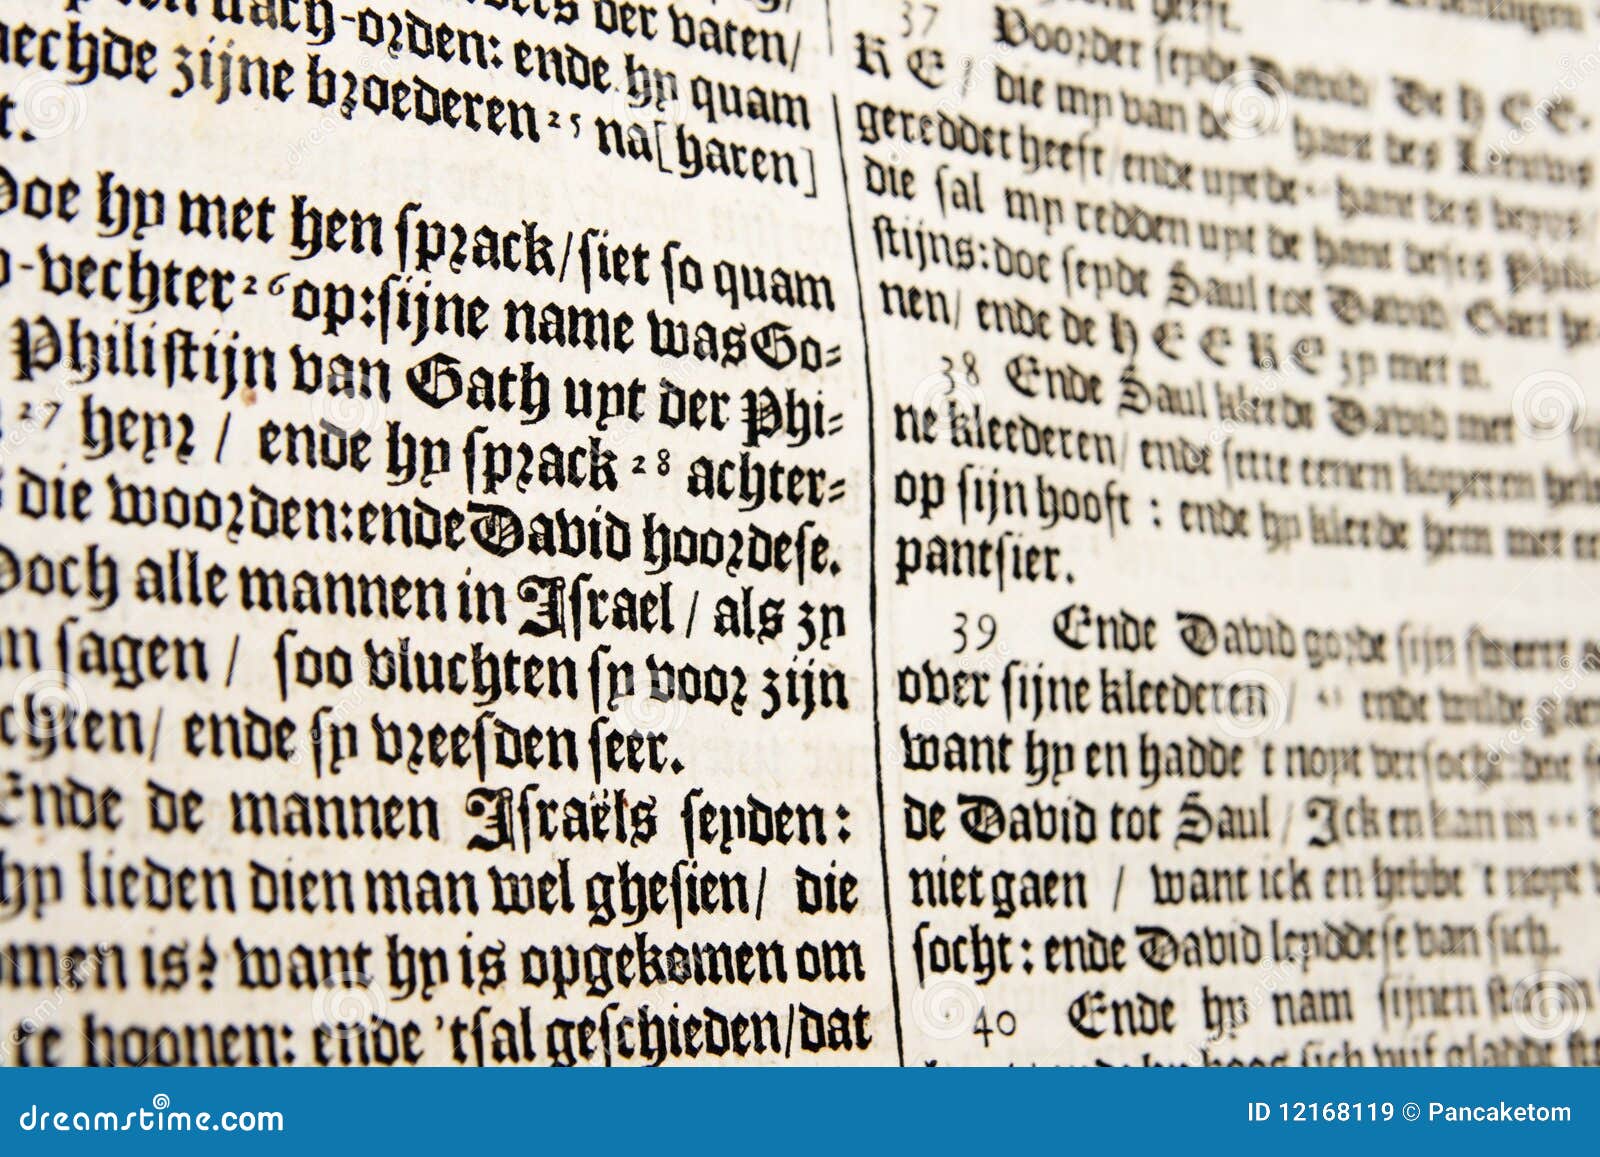 der vaten/
nach-orden: ende hy quam
zijne broederen 25 na[haren]
t.
Doe hy met hen sprack/siet so quam
-vechter 26 op:sijne name was Go-
Philistijn van Gath uyt der Phi-
27 heyr / ende hy sprack 28 achter-
die woorden:ende David hoordese.
Doch alle mannen in Israel / als zy
sagen / soo vluchten sy voor zijn
ende sy vreesden seer.
Ende de mannen Israëls seyden:
hy lieden dien man wel ghesien/ die
is? want hy is opgekomen om
te hoonen: ende 'tsal geschieden/dat
37 Voorder seyde David/ De HEE-
RE / die my van de hant des Leeuws
gereddet heeft/ende uyt de hant des beyrs/
die sal my redden uyt de hant deses Phili-
stijns:doe seyde Saul tot David Gaet he-
nen/ ende de HEERE zy met u.
38 Ende Saul kleede David met
ne kleederen/ ende sette eenen koperen helm
op sijn hooft : ende hy kleede hem met een
pantsier.
39 Ende David gorde sijn sweert
over sijne kleederen / ende wilde gaen
want hy en hadde 't noyt versocht: doe
de David tot Saul / Ick en kan
niet gaen / want ick en hebbe 't noyt
socht: ende David leyddese van sich.
40 Ende hy nam sijnen
dreamstime.com
ID 12168119 © Pancaketom